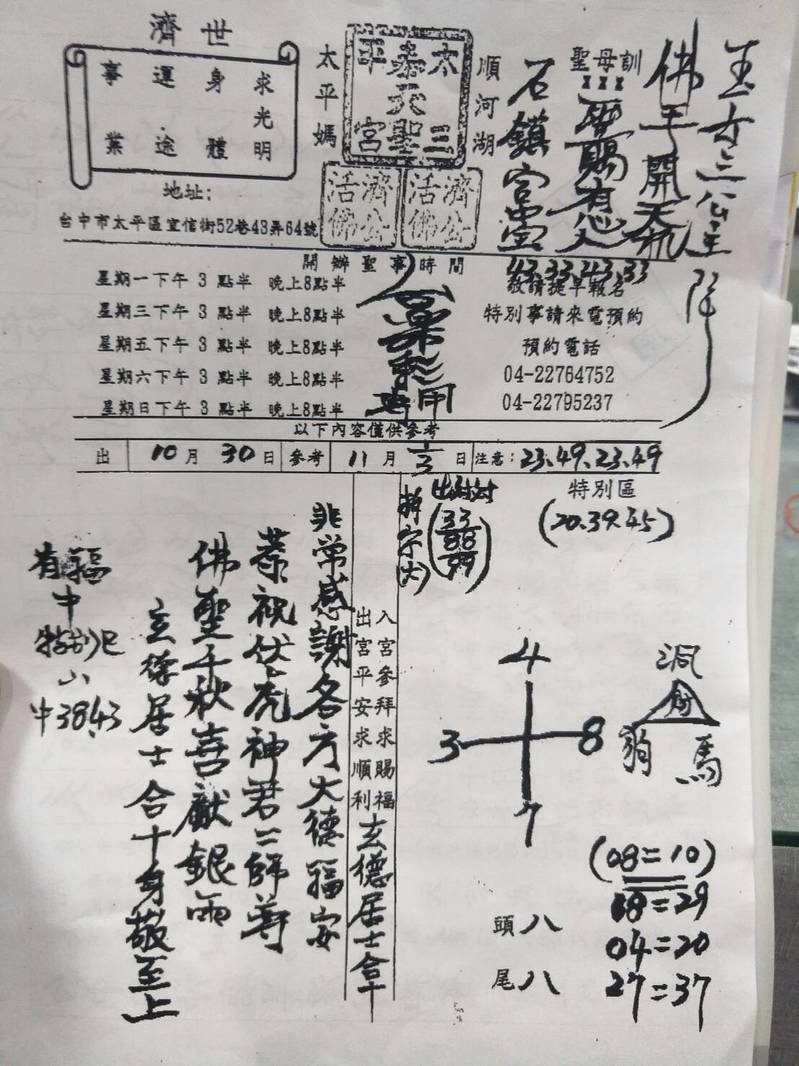 濟世
求光明
身體
運途
事業
地址:
台中市太平區宜信街52巷43弄64號
太平媽
順河湖
濟公活佛
濟公活佛
聖母訓
佛手開天机
石鎮宮
開辦聖事時間
星期一下午 3 點半 晚上8點半
星期三下午 3 點半 晚上8點半
星期五下午 3 點半 晚上8點半
星期六下午 3 點半 晚上8點半
星期日下午 3 點半 晚上8點半
43.33.43.33
敬請提早報名
特別事請來電預約
預約電話
04-22764752
04-22795237
以下內容僅供參考
出 10 月 30 日 參考 11 月 1/3 日 注意: 23.49.23.49
特別區
(20.39.45)
入宮參拜求賜福
出宮平安求順利
玄德居士拿
非常感謝各方大德福安
恭祝伏虎神君二師尊
佛聖千秋喜獻銀兩
玄德居士合十身敬至上
中3843
4
3 8
7
洞
狗 馬
頭 八
尾 八
(08=10)
18=29
04=20
27=37